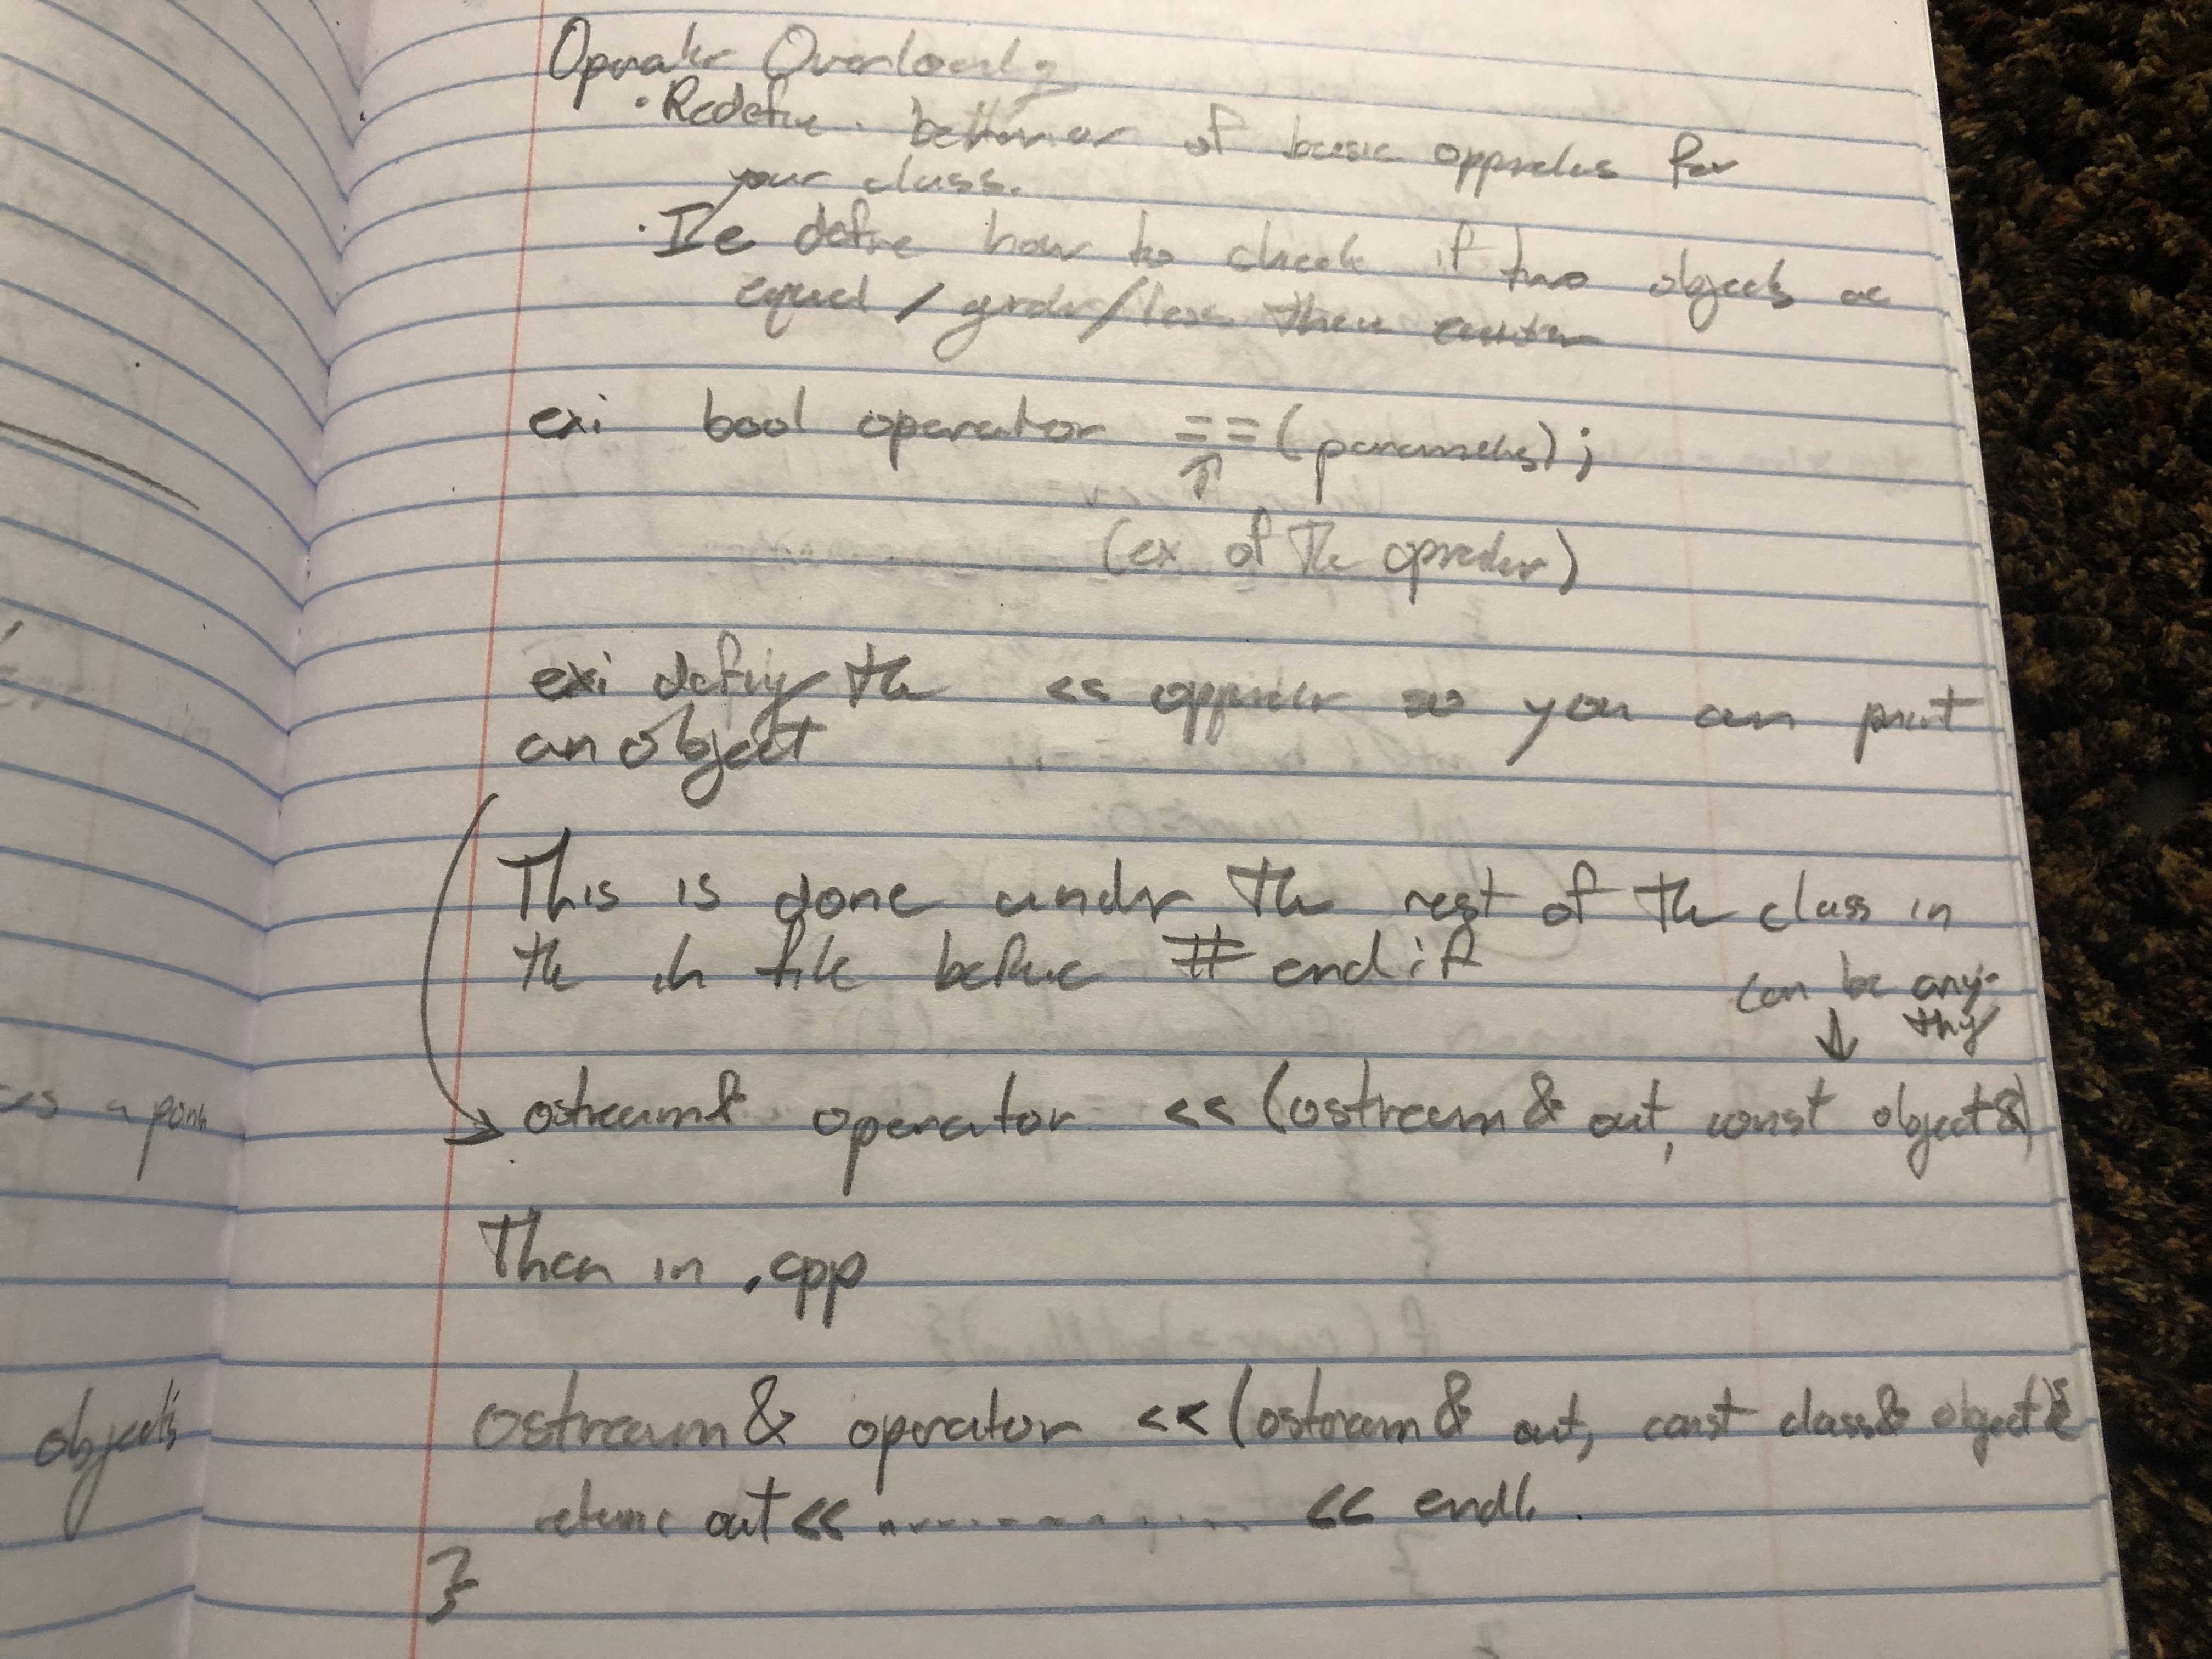 Operator Overloading
• Redefine behavior of basic opperators for
your class.
• Ie define how to check if two objects are
equal / greater / less than another
ex: bool operator ==(parameters);
↑
(ex of the operator)
ex: defining the << opperator so you can print
an object
This is done under the rest of the class in
the .h file before #endif
can be any-
thing
↓
ostream& operator <<(ostream& out, const object&)
Then in .cpp
ostream& operator <<(ostream& out, const class& object){
return out << ............ << endl;
}
es a point
objects